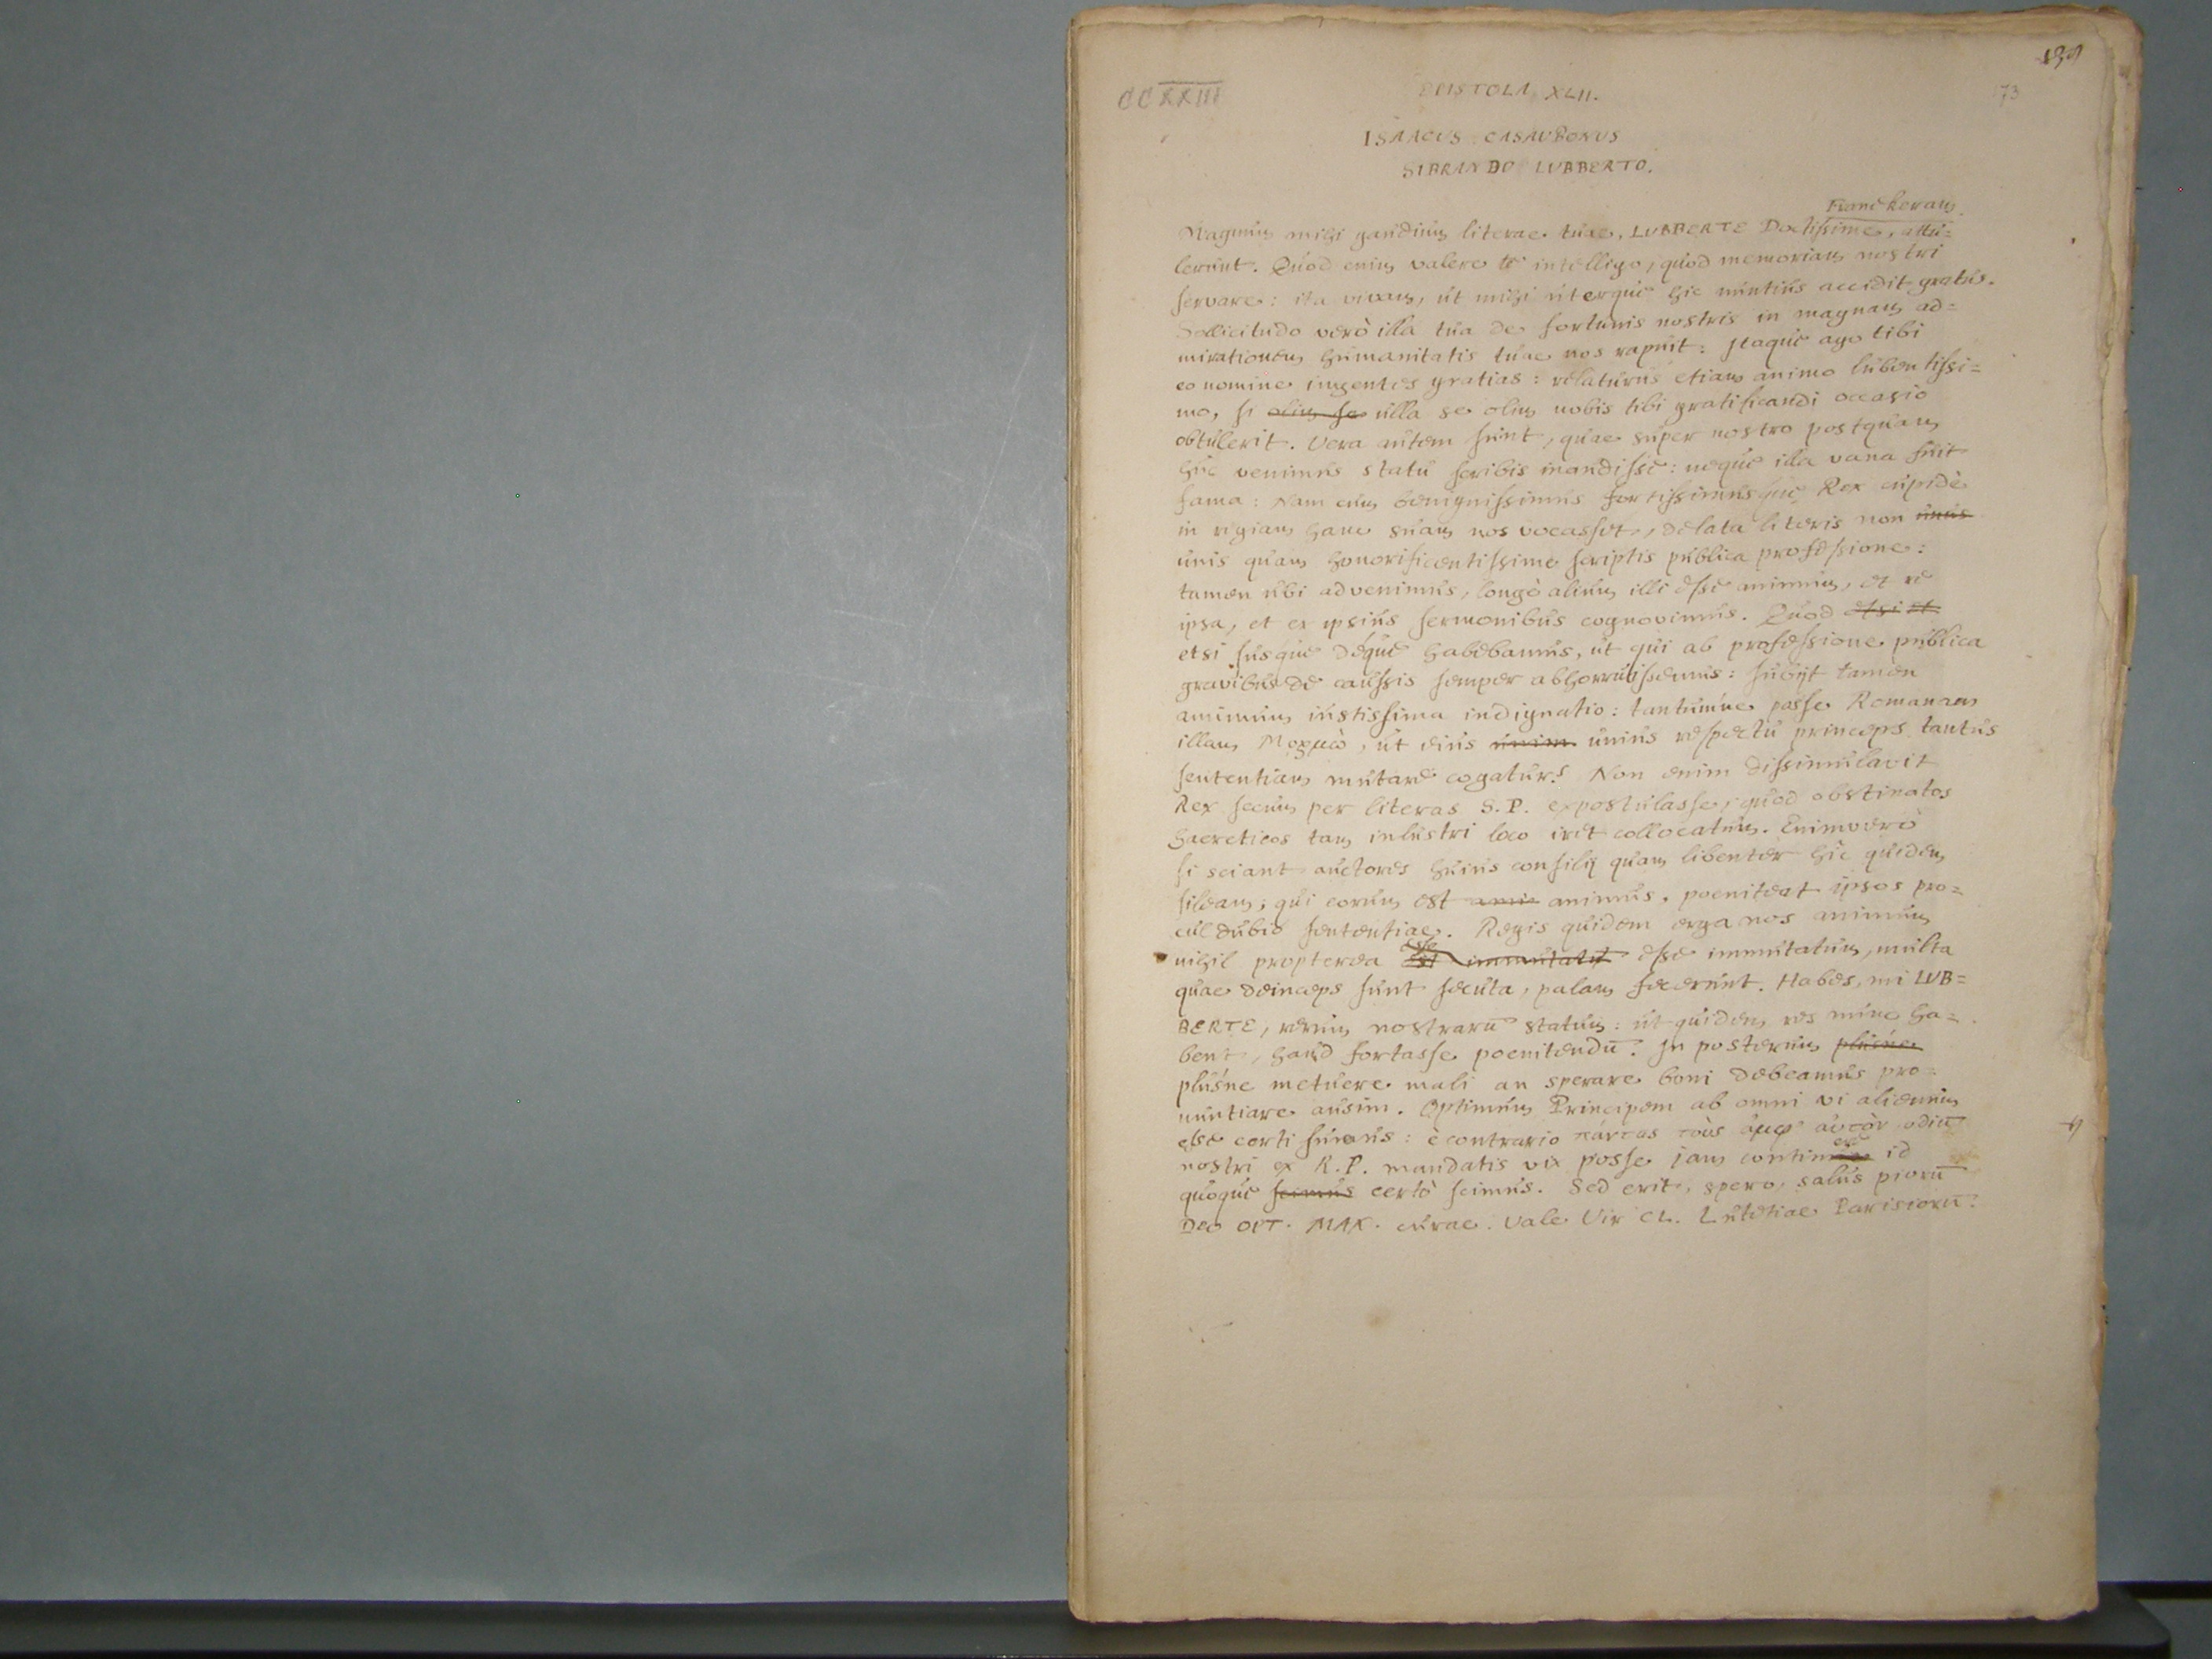 139
CCXXIII
EPISTOLA XLII.
73
ISAACUS CASAUBONUS
SIBRANDO LUBBERTO.
Franekeram
Magnum mihi gaudium literae tuae, LUBBERTE Doctissime, attu=
lerunt. Quod enim valere te intelligo, quod memoriam nostri
servare: ita vivam, ut mihi uterque hic nuntius accidit gratus.
Sollicitudo verò illa tua de fortunis nostris in magnam ad=
mirationem humanitatis tuae nos rapuit: Itaque ago tibi
eo nomine ingentes gratias: relaturus etiam animo lubentissi=
mo, si olim se ulla se olim nobis tibi gratificandi occasio
obtulerit. Vera autem sunt, quae super nostro postquam
huc venimus statu scribis inaudisse: neque illa vana fuit
fama: Nam cum benignissimus fortissimusque Rex cupidè
in regiam hanc suam nos vocasset, delata literis non unis
unis quam honorificentissime scriptis publica professione:
tamen ubi advenimus, longè alium illi esse animum, et re
ipsa, et ex ipsius sermonibus cognovimus. Quod etsi et
etsi susque déque habebamus, ut qui ab professione publica
gravibus de caussis semper abhorruissemus: subijt tamen
animum iustissima indignatio: tantumne posse Romanam
illam Μορμὼ, ut eius unim unius respectu princeps tantus
sententiam mutare cogatur? Non enim dissimulavit
Rex secum per literas S.P. expostulasse, quod obstinatos
haereticos tam inlustri loco iret collocatum. Enimverò
si sciant auctores huius consilij quam libenter hîc quidem
sileam, qui eorum est amin animus, poeniteat ipsos pro=
cul dubio sententiae. Regis quidem erga nos animum
esse
nihil propterea est immutatum esse immutatum, multa
quae deinceps sunt secuta, palam fecerunt. Habes, mi LUB=
BERTE, rerum nostrarū statum: ut quidem res nunc ha=
bent, haud fortasse poenitendū. In posterum plusne
plusne metuere mali an sperare boni debeamus pro=
nuntiare ausim. Optimum Principem ab omni vi alienum
esse certi sumus: è contrario πάντας τοὺς ἀμφ' αὐτὸν odiū
ere
nostri ex R.P. mandatis vix posse iam contin id
quoque scimus certò scimus. Sed erit, spero, salus piorū
Deo OPT. MAX. curae. Vale Vir CL. Lutetiae Parisiorū.